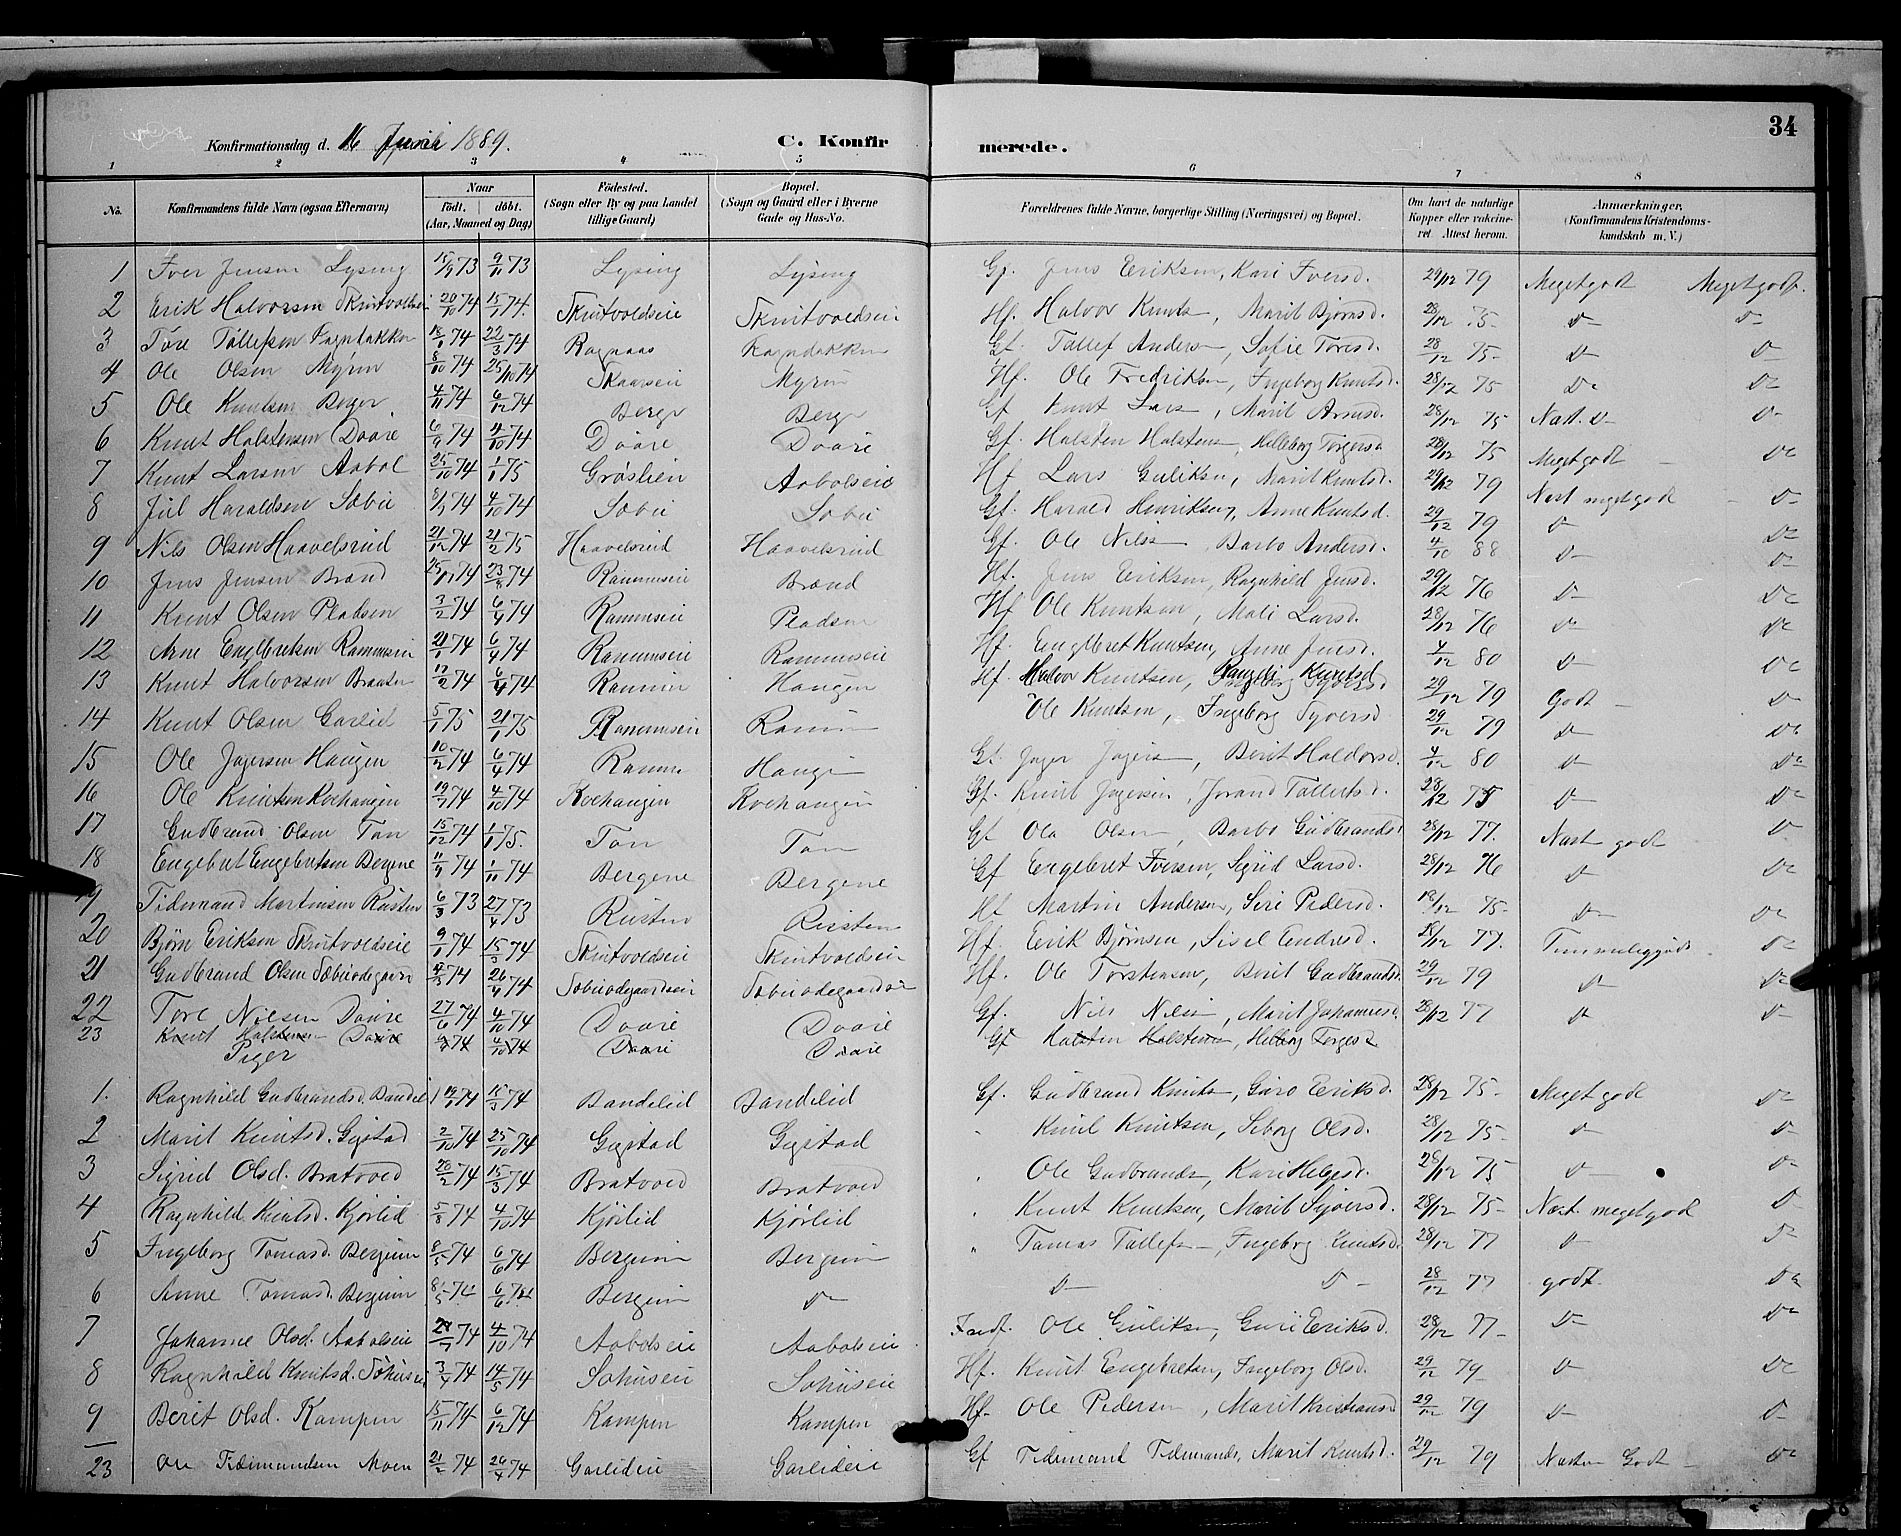 34
Konfirmationsdag d. 16 Juni 1889. C. Konfirmerede.
1 2 3 4 5 6 7 8
No. Konfirmandens fulde Navn (ogsaa Efternavn) Naar født. døbt. (Aar, Maaned og Dag) Fødested. (Sogn eller By og paa Landet tillige Gaard) Bopæl. (Sogn og Gaard eller i Byerne Gade og Hus-No. Forældrenes fulde Navne, borgerlige Stilling (Næringsvei) og Bopæl. Om havt de naturlige Kopper eller vakcineret Attest herom. Anmærkninger. (Konfirmandens Kristendomskundskab m. V.)
1 Iver Jensen Lysing 73 9/11 73 Lysing Lysing Gf. Jens Eriksen, Kari Iversd. 29/12 79 Megetgodt Megetgodt.
2 Erik Halvorsen 20/10 74 74 Skutvoldseie Skutvoldseie Hf. Halvor Knuts, Marit Bjørnsd. 28/12 75 D- D-
3 Tore Tollefsen 74 22/3 74 Ragnaas Gf. Tollef Anders, Sofie Toresd. 28/12 75 D- D-
4 Ole Olsen Myrin 8/10 74 25/10 74 Myrin Hf. Ole Fredriksen, Ingeborg Knutsd. 28/12 75 D- D-
5 Ole Knutsen Berge 4/11 74 6/12 74 Berge Berge Gf Knut Lars, Marit Arnesd. 28/12 75 Næst. D- D-
6 Knut Halstensen Døvre 6/9 74 4/10 74 Døvre Døvre Gf. Halsten Halstens, Helleborg Torgersd 28/12 75 Megetgodt D-
7 Knut Larsen Aabol 25/10 74 1/1 75 Grøslien Aabolseie Hf Lars Guliksen, Marit Knutsd. 29/12 79 Næst megetgodt D-
8 Jul Haraldsen Sæbu 74 4/10 74 Sæbu Sæbu Gf. Harald Henriksen, Anne Knutsd. 29/12 79 D- D-
9 Nils Olsen Haavelsrud 21/12 74 21/2 75 Haavelsrud Haavelsrud Gf. Ole Nils, Barbo Andersd. 4/10 88 D- D-
10 Jens Jensen Brænd 74 23/8 74 Rammseie Brænd Hf. Jens Eriksen, Ragnhild Jensd. 29/12 76 D- D-
11 Knut Olsen Pladsen 3/2 74 6/4 74 Rammseie Pladsen Hf Ole Knutsen, Mali Larsd. 28/12 76 D- D-
12 Arne Englbretsen Rammseie 21/1 74 6/4 74 Rammseie Rammseie Hf. Englbret Knutsen, Anne Jensd. 4/12 80 D- D-
13 Knut Halvorsen Braaten 12/2 74 6/4 74 Haugen Hf. Halvor Knutsen, Rangdi Knutsd 29/12 79 Godt D-
14 Knut Olsen Garlid 5/1 75 21/1 75 Rammseie " Ole Knutsen, Ingeborg Syversd 29/12 79 D- D-
15 Ole Jøgersen Haugen 10/2 74 6/4 74 Haugen Gf. Jøger Jøgers, Berit Haldorsd. 4/12 80 D- D-
16 Ole Knutsen Kvehaugen 19/7 74 4/10 74 Kvehaugen Kvehaugen Gf. Knut Jøgersen, Jørand Tollefsd. 28/12 75 D- D-
17 Gudbrand Olsen Ton 15/12 74 1/1 75. Ton Ton Gf Ola Olsen, Barbo Gudbrandsd 28/12 77. Næst godt D-
18 Engebret Engebretsen Bergene 11/9 74 1/11 74 Bergene Bergene Gf Engebret Iversen, Sigrid Larsd. 28/12 76 D- D-
19 Tidemand Martinsen Rusten 6/3 73 27/4 73 Rusten Rusten Hf Martin Andersen, Siri Pedersd. 75 D- D-
20 Bjørn Eriksen Skutvoldseie 9/1 74 15/3 74 Skutvoldseie Skutvoldseie Hf. Erik Bjørnsen, Sisel Endresd. 28/12 77. Temmeliggodt D-
21 Gudbrand Olsen Sæbuødegaard 74 26/4 74 Sæbuødegaardseie Sæbuødegaardseie Hf. Ole Torstensen, Berit Gudbrandsd. 29/12 79 D- D-
22 Tore Nilsen Døvre 27/6 74 4/10 74 Døvre Døvre Gf. Nils Nils, Marit Johannesd. 28/12 77 D- D-
23 Knut Halstensen Døvre 6/9 74 4/10 74 Døvre Døvre Gf Halsten Halstensen, Helborg Torgersd
Piger
1. Ragnhild Gudbrandsd. Bandeli 19/1 74 15/3 74 Bandelid Bandelid Gf. Gudbrand Knuts, Guro Eriksd. 28/12 75 Meget godt D-
2 Marit Knutsd. Gystad 2/10 74 25/10 74 Gystad Gystad " Knut Knutsen, Siborg Olsd. 28/12 75 D- D-
3 Sigrid Olsd. Bratvold 20/2 74 15/3 74 Bratvold Bratvold " Ole Gudbrands, Kari Helgesd. 28/12 75 D- D-
4 Ragnhild Knutsd. Kjørlid 5/8 74 4/10 74 Kjørlid Kjørlid " Knut Knutsen, Marit Syversd. 28/12 75 Næst. megetgodt D-
5 Ingeborg Tomasd. Bergum 8/5 74 6/6 74 Bergum Bergum " Tomas Tollefs, Ingeborg Knutsd. 28/12 77 D- D-
6 Anne Tomasd. Bergum 8/5 74 6/6 74 Bergum D- D- D- 28/12 77 godt. D-
7 Johanne Olsd. Aabolseie 74 4/10 74 Aabolseie Aabolseie Indf. Ole Guliksen, Guri Eriksd. 28/12 77 D- D-
8 Ragnhild Knutsd. Søhuseie 74 14/5 74 Søhuseie Søhuseie Hf. Knut Engebretsen, Ingeborg Olsd. 29/12 79 D- D-
9 Berit Olsd. Kampen 15/11 74 6/12 74 Kampen Kampen Hf. Ole Pedersen, Marit Kristiansd 29/12 79 D- D-
23 Ole Tidemandsen Moen 21/2 74 26/4 74 Garlideie Garlideie Gf Tidemand Tidemands, Marit Knutsd. 29/12 79 Næsten Godt D-